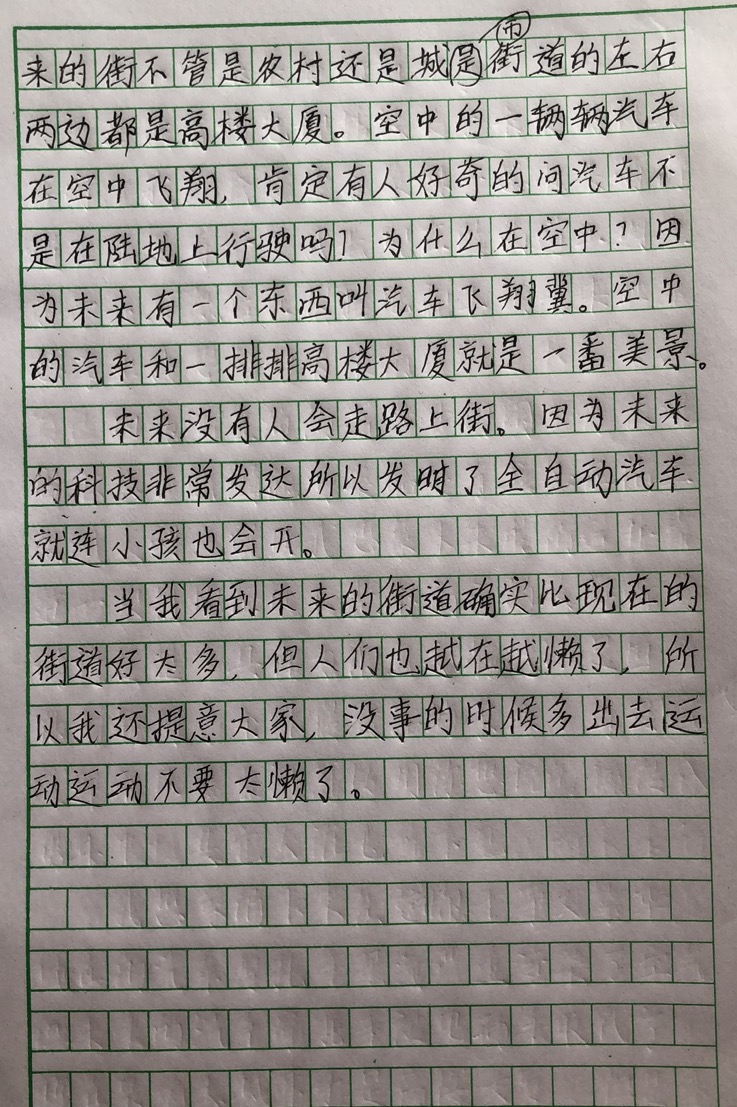 来的街不管是农村还是城市街道的左右
两边都是高楼大厦。空中的一辆辆汽车
在空中飞翔,肯定有人好奇的问汽车不
是在陆地上行驶吗?为什么在空中?因
为未来有一个东西叫汽车飞翔翼。空中
的汽车和一排排高楼大厦就是一番美景。
未来没有人会走路上街。因为未来
的科技非常发达所以发明了全自动汽车
就连小孩也会开。
当我看到未来的街道确实比现在的
街道好太多,但人们也越在越懒了,所
以我还提意大家,没事的时候多出去运
动运动不要太懒了。